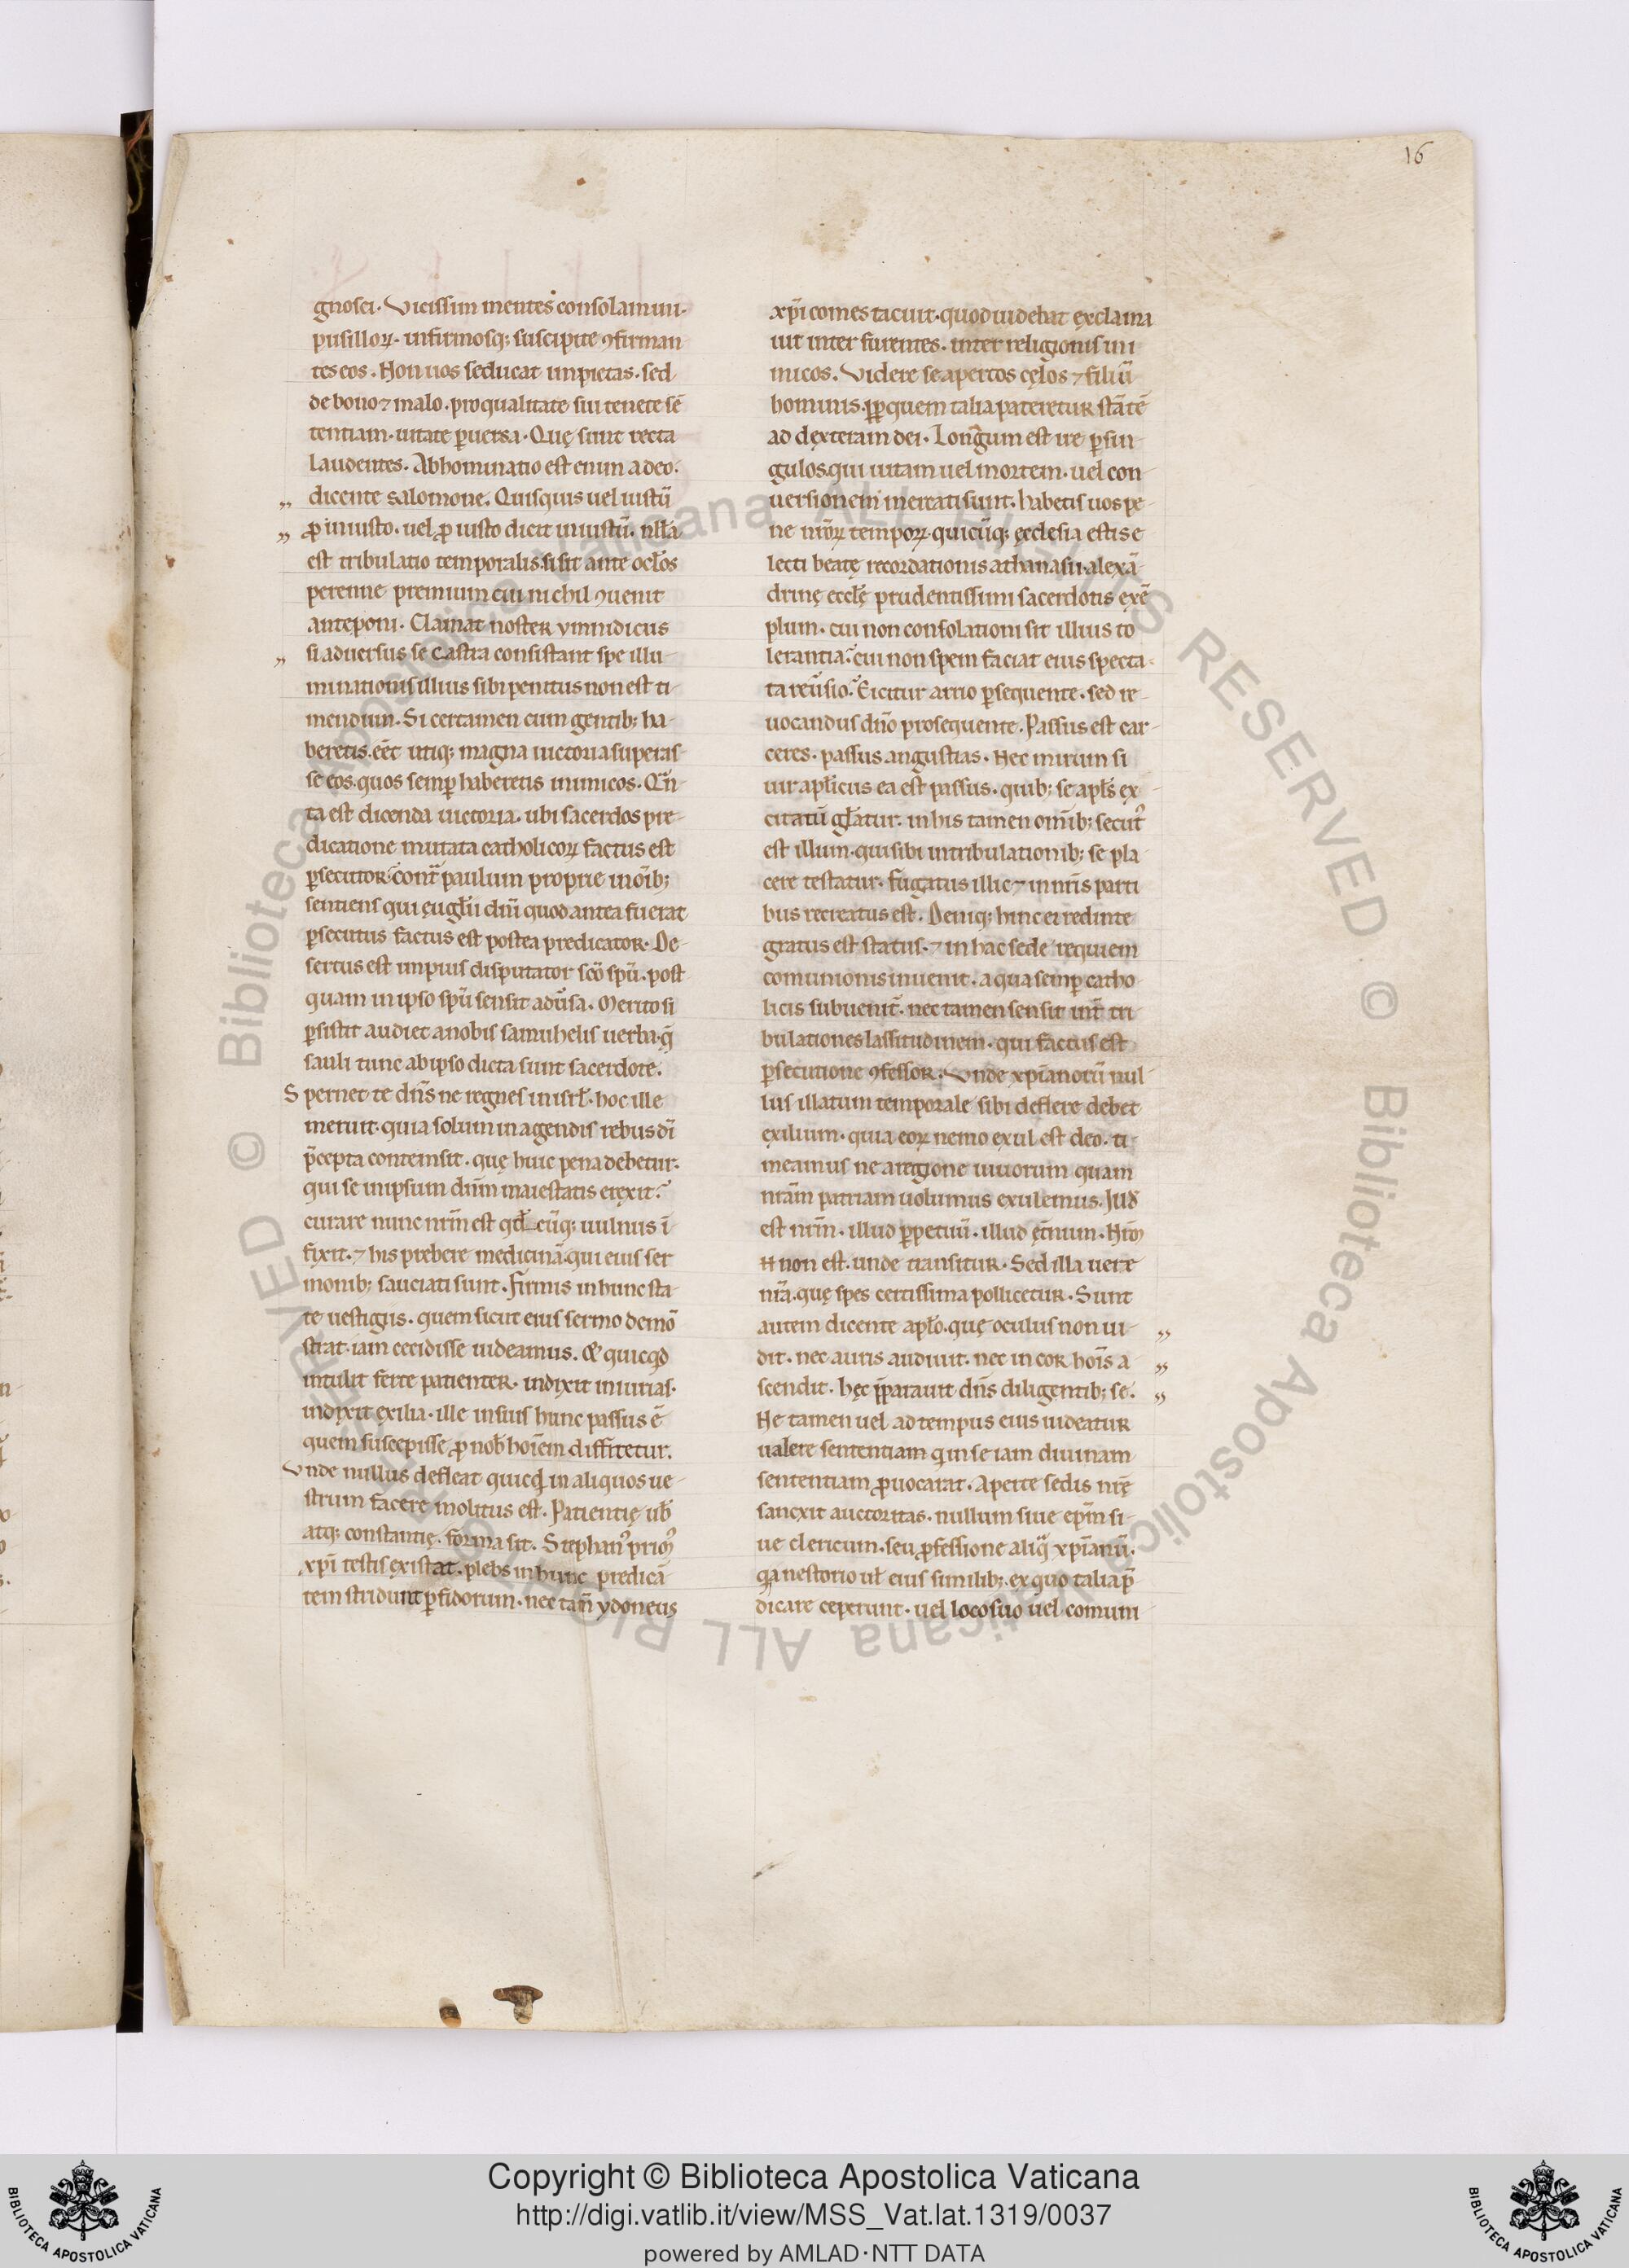 16
gnosci. Vicissim mentes consolamini.
pusilloꝝ. infirmosq; suscipite ꝯfirman
tes eos. Non uos seducat impietas. sed
de bono ⁊ malo. pro qualitate sui tenete sē
tentiam. uitate ꝑuersa. Quę sunt recta
laudentes. Abhominatio est enim a deo.
„ dicente salomone. Quisquis uel iustū
„ ꝓ iniusto. uel ꝓ iusto dicit iniustū. nłła
est tribulatio temporalis. si sit ante ocłos
perenne premium cui nichil ꝯuenit
anteponi. Clamat noster ymnidicus
„ si aduersus se castra consistant spe illu-
minationis illius sibi penitus non est ti-
mendum. Si certamen cum gentib; ha-
beretis. eēt utiq; magna uictoria superas-
se eos. quos semꝑ haberetis inimicos. Qn̄-
ta est dicenda uictoria. ubi sacerdos pre-
dicatione mutata catholicoꝝ factus est
ꝑsecutor. contͣ paulum proprie in oīb;
sentiens qui euglii dn̄i quod antea fuerat
ꝑsecutus factus est postea predicator. De-
sertus est impius disputator sc̄o sp̄u. post
quam in ipso sp̄u sensit adūsa. Merito si
ꝑsistit audiet a nobis samuhelis uerba. q̄
sauli tunc ab ipso dicta sunt sacerdote.
Spernet te dn̄s ne regnes in isrł. hoc ille
meruit. quia solum in agendis rebus dī
p̄cepta contemsit. quę huic pena debetur.
qui se in ipsum dn̄m maiestatis erexit?
curare nunc nr̄m est qd̄ cūq; uulnus ī
fixit. ⁊ his prebere medicinā. qui eius ser
monib; sauciati sunt. Firmis in hunc sta-
te uestigiis. quem sicut eius sermo demō
strat. iam cecidisse uideamus. & quicqd
intulit ferte patienter. indixit iniurias.
indyxit exilia. ille in suis hunc passus ē
quem suscepisse ꝓ nob hoīem diffitetur.
Vnde nullus defleat quicq̄ in aliquos ue-
strum facere molitus est. Patientię ub̄
atq; constantię. forma sit. Stephan᷒ prim᷒
xp̄i testis existat. plebs in hunc predicā
tem stridunt ꝑfidorum. nec tam̄ ydoneus
xp̄i comes tacuit. quod uidebat exclama
uit inter furentes. inter religionis ini
micos. Videre se apertos cęlos ⁊ filiū
hominis. ꝓꝑ quem talia pateretur stātē
ad dexteram dei. Longum est ire ꝑ sin-
gulos qui uitam uel mortem. uel con-
uersionem mercati sunt. habetis uos pe-
ne nr̄oꝝ tempoꝝ. quicūq; ecclesia estis e
lecti beatę recordationis athanasii. alexā
drinę ecclę̄ prudentissimi sacerdotis exē
plum. cui non consolationi sit illius to
lerantia? cui non spem faciat eius specta-
ta reūsio? Eicitur arrio ꝑsequente. sed re-
uocandus dn̄o prosequente. Passus est car-
ceres. passus angustias. Nec mirum si
uir apłicus ea est passus. quib; se apłs ex-
citatū głatur. in his tamen omīb; secut᷒
est illum. qui sibi in tribulationib; se pla
cere testatur. Fugatus illic ⁊ in nr̄is parti
bus recreatus est. Deniq; hinc ei redinte
gratus est status. ⁊ in hac sede requiem
comunionis inuenit. a qua semꝑ catho
licis subuenit̄. nec tamen sensit int̄ tri
bulationes lassitudinem. qui factus est
ꝑsecutione ꝯfessor. Vnde xp̄ianorū nul-
lus illatum temporale sibi deflere debet
exilium. quia eoꝝ nemo exul est deo. ti-
meamus ne a regione uiuorum quam
nr̄am patriam uolumus exulemus. Jllud
est nr̄m. illud ꝑpetuū. illud ęt̄num. Nr̄m
.n. non est. unde transitur. Sed illa uere
nr̄a. quę spes certissima pollicetur. Sunt
autem dicente apło. quę oculus non ui- „
dit. nec auris audiuit. nec in cor hoīs a- „
scendit. hęc p̄parauit dn̄s diligentib; se. „
Ne tamen uel ad tempus eius uideatur
ualere sententiam q in se iam diuinam
sententiam ꝓuocarat. Aperte sedis nrę̄
sancxit auctoritas. nullum siue ep̄m si-
ue clericum. seu ꝓfessione aliq̄ xp̄ianū.
qͣ a nestorio uł eius similib;. ex quo talia p̄
dicare ceperunt. uel loco suo uel comuni
© Biblioteca Apostolica Vaticana ALL RIGHTS RESERVED © Biblioteca Apostolica Vaticana ALL RIGHTS RESERVED
Copyright © Biblioteca Apostolica Vaticana
http://digi.vatlib.it/view/MSS_Vat.lat.1319/0037
powered by AMLAD·NTT DATA
BIBLIOTECA APOSTOLICA VATICANA
BIBLIOTECA APOSTOLICA VATICANA